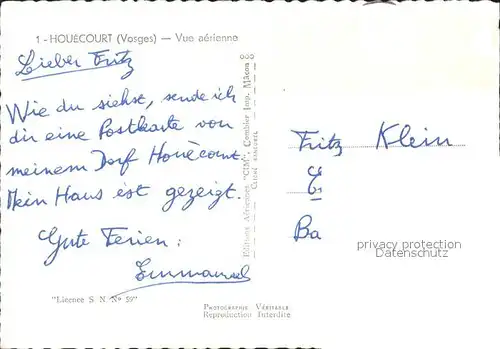 1 - HOUÉCOURT (Vosges) — Vue aérienne
Lieber Fritz
Wie du siehst, sende ich
dir eine Postkarte von
meinem Dorf Houècourt.
Mein Haus ist gezeigt.
Gute Ferien :
Emmanuel
"Licence S. N. N° 59"
Editions Aériennes "CIM", Combier Imp. Mâcon
PHOTOGRAPHIE VÉRITABLE
Reproduction Interdite
Fritz Klein
Ba
privacy protection
Datenschutz